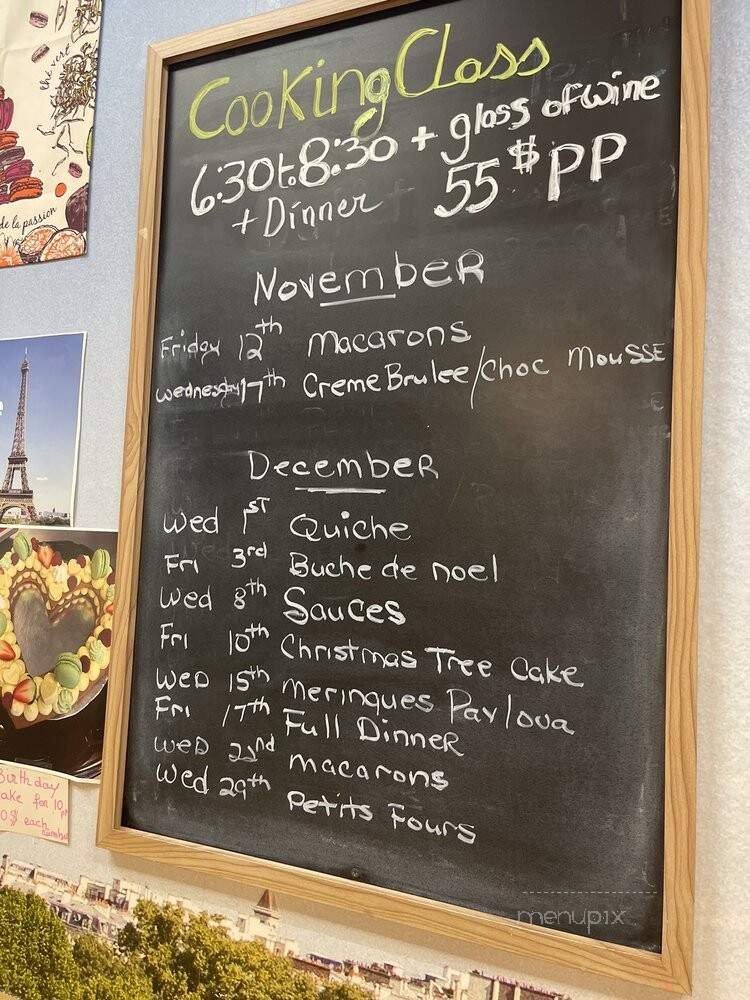 thé vert
de la passion
Cooking Class
6:30 to 8:30 + glass of wine
+ Dinner 55 $ PP
November
Friday 12th Macarons
Wednesday 17th Creme Brulee/Choc Mousse
December
Wed 1st Quiche
Fri 3rd Buche de noel
Wed 8th Sauces
Fri 10th Christmas Tree Cake
Wed 15th Meringues Pavlova
Fri 17th Full Dinner
Wed 22nd macarons
Wed 29th Petits Fours
Birthday
ake for 10
0$ each
menupix